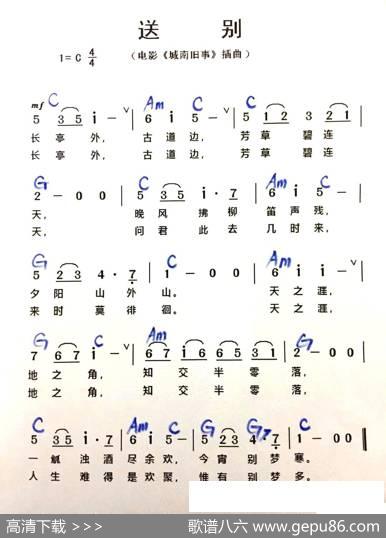 送 别
1=C 4/4 （电影《城南旧事》插曲）
mf C Am C
5 3 5 i - | 6 i 5 - | 5 1 2 3 2 1 |
长 亭 外， 古 道 边， 芳 草 碧 连
长 亭 外， 古 道 边， 芳 草 碧 连
G C Am C
2 - 0 0 | 5 3 5 i · 7 | 6 i 5 - |
天， 晚 风 拂 柳 笛 声 残，
天， 问 君 此 去 几 时 来，
G C Am
5 2 3 4 · 7 | 1 - 0 0 | 6 i i - |
夕 阳 山 外 山。 天 之 涯，
来 时 莫 徘 徊。 天 之 涯，
G Am G
7 6 7 i - | 6 7 i 6 6 5 3 1 | 2 - 0 0 |
地 之 角， 知 交 半 零 落，
地 之 角， 知 交 半 零 落，
C Am C G G7 C
5 3 5 i · 7 | 6 i 5 - | 5 2 3 4 · 7 | 1 - 0 0 |
一 觚 浊 酒 尽 余 欢， 今 宵 别 梦 寒。
人 生 难 得 是 欢 聚， 惟 有 别 梦 多。
高清下载 >>> 歌谱八六 www.gepu86.com